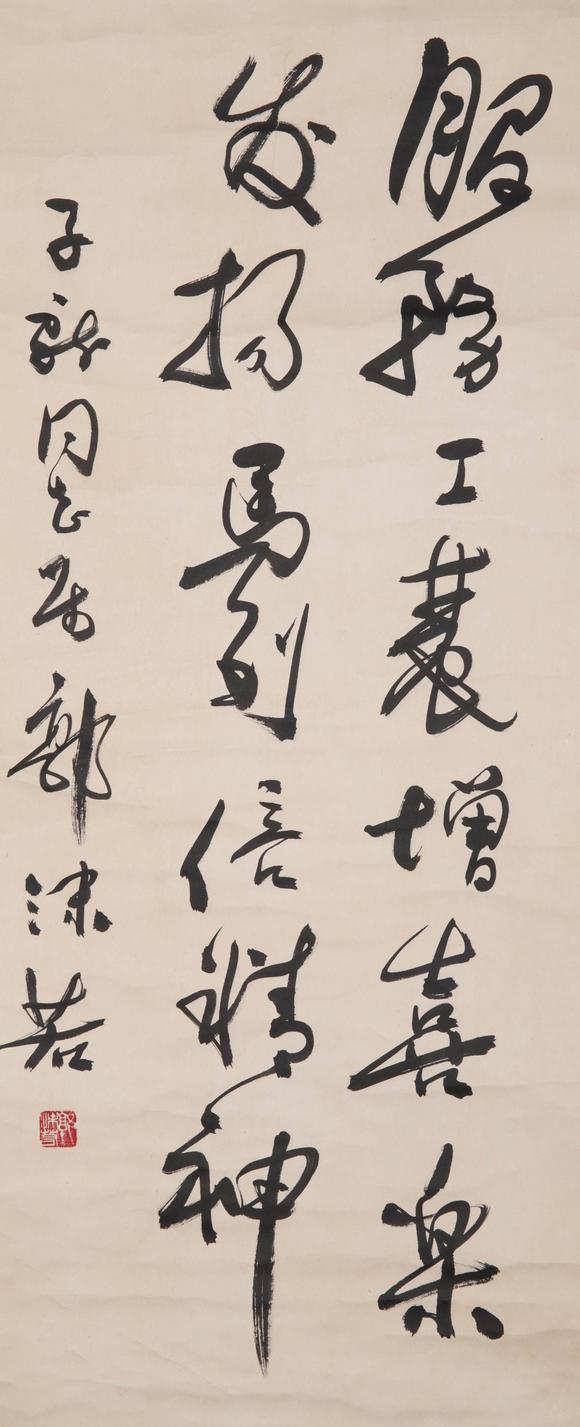 服務工農增喜樂
发揚馬列倍精神
子龍同志属 郭沫若
郭沫若